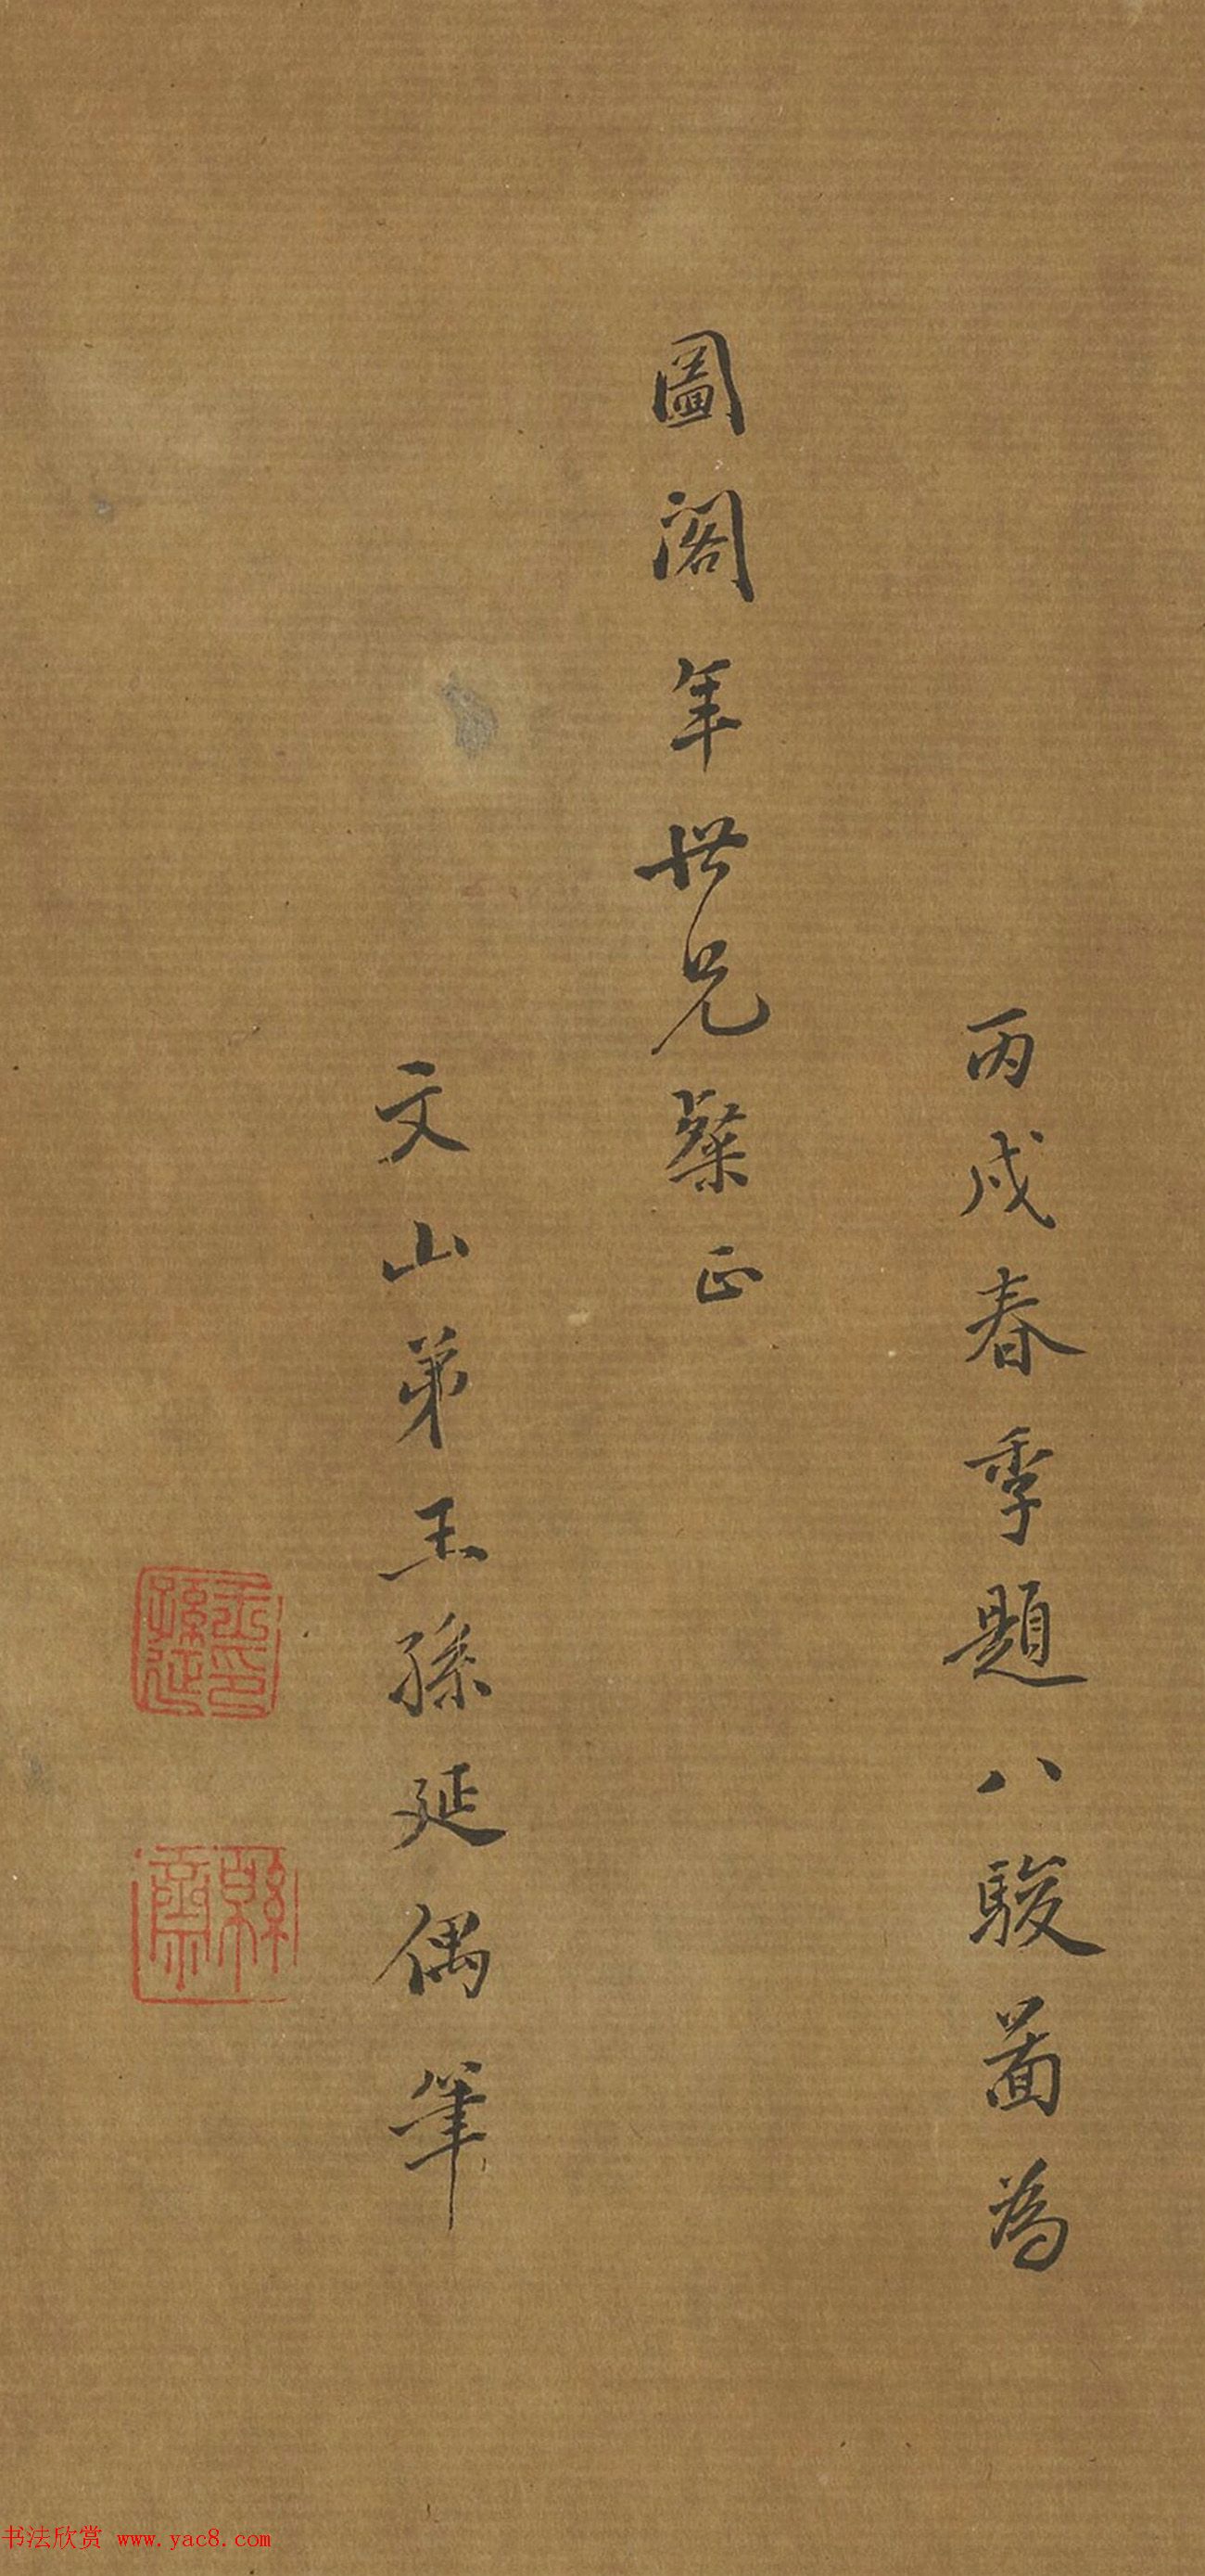 丙戌春季題八駿圖為
圖閣年世兄粲正
文山弟王孫延偶筆
书法欣赏 www.yac8.com